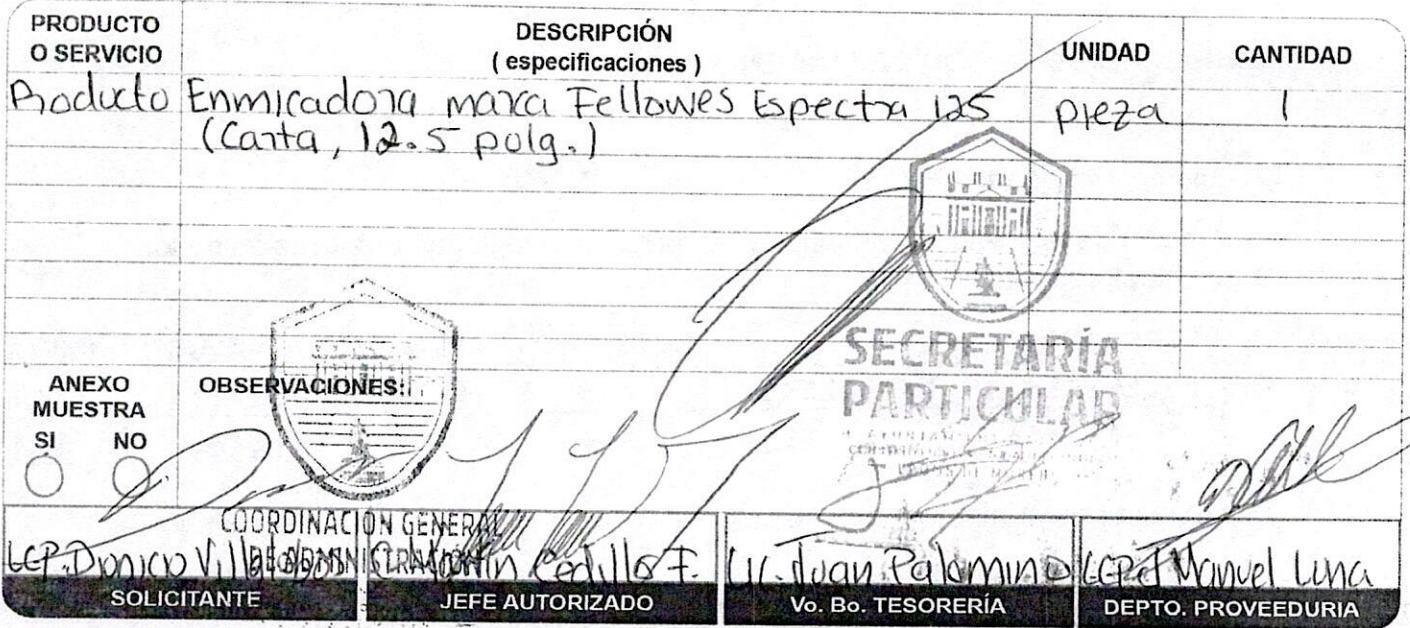 PRODUCTO O SERVICIO
DESCRIPCIÓN ( especificaciones )
UNIDAD
CANTIDAD
Producto Enmicadora marca Fellowes Espectra 125 pieza 1
(Carta, 12.5 polg.)
SECRETARÍA
PARTICULAR
ANEXO MUESTRA
SI NO
OBSERVACIONES:
COORDINACIÓN GENERAL
DE ADMINISTRACIÓN
LCP. Dionicio Villalobos
Martin Cedillo F.
Lic. Juan Palomino
Manuel Luna
SOLICITANTE
JEFE AUTORIZADO
Vo. Bo. TESORERÍA
DEPTO. PROVEEDURIA